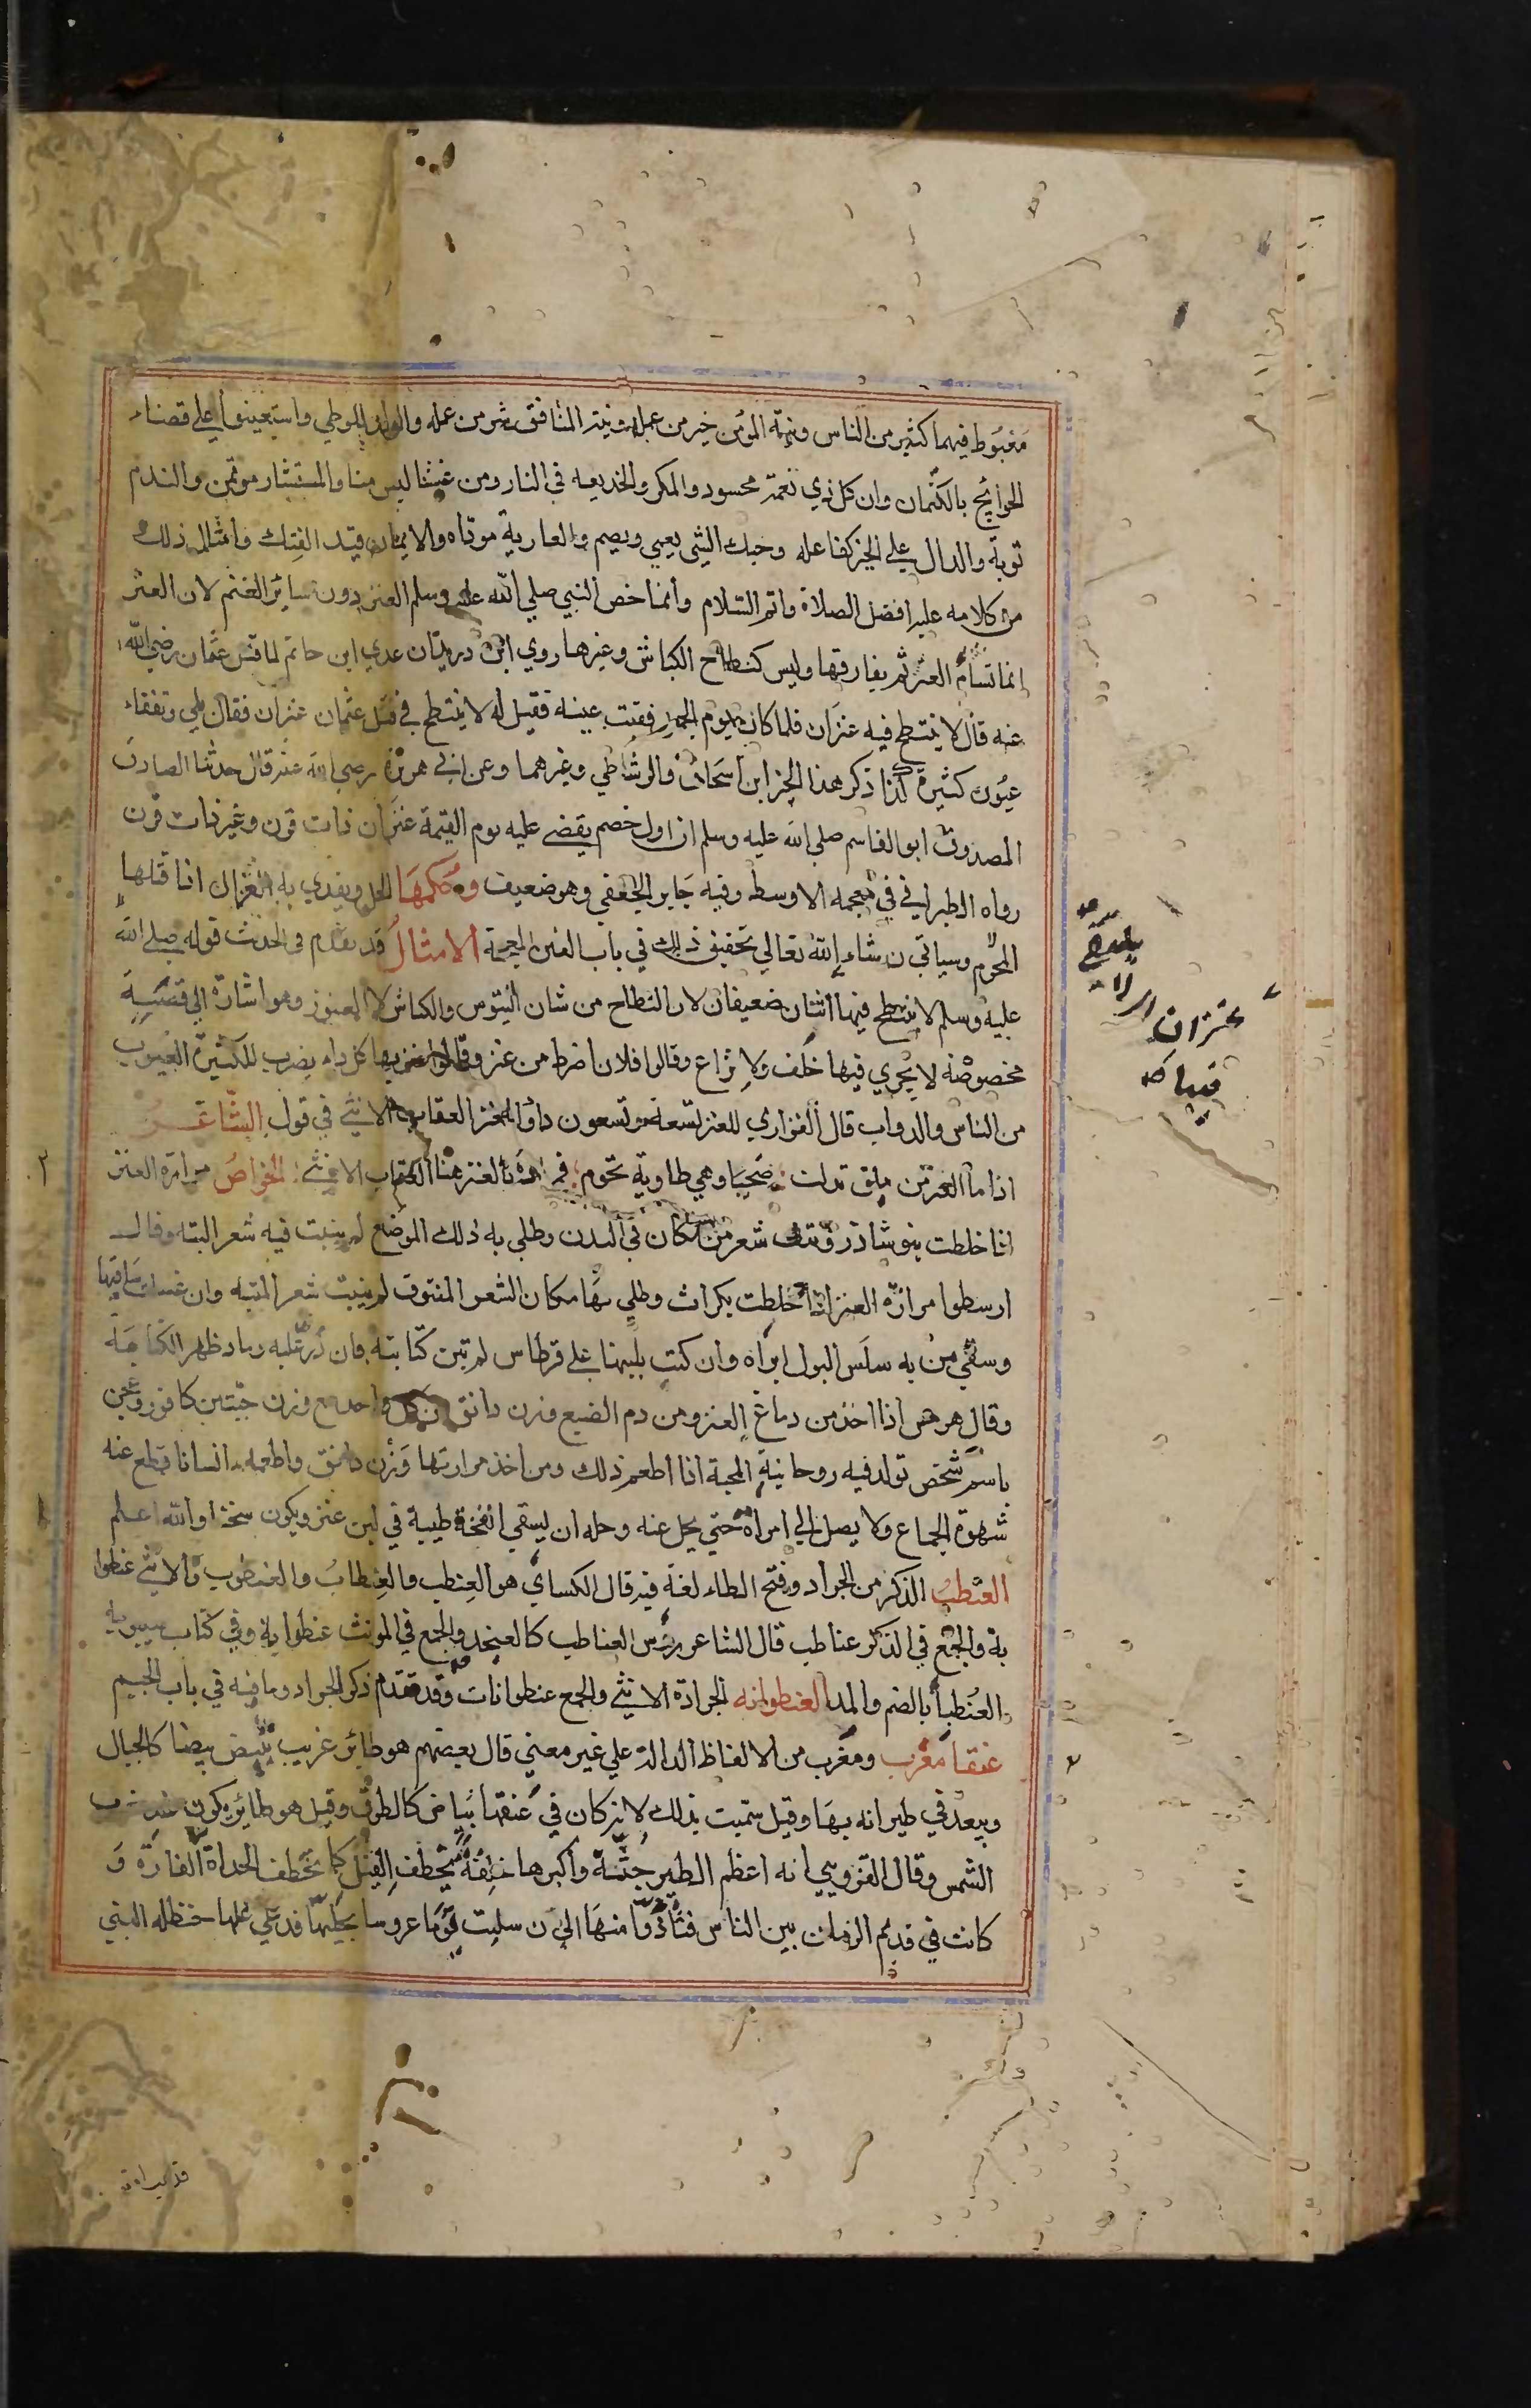 مغبوط فيهما كثير من الناس ونية المؤمن خير من عمله ونية المنافق شر من عمله والولد للوطي واستعينوا علي قضاء
الحوائج بالكتمان وان كل ذي نعمة محسود والمكر والخديعه في النار ومن غشنا ليس منا والمستشار موتمن والندم
توبة والدال علي الخير كفاعله وحبك الشي يعمي ويصم والعارية موداه والايمان قيد الفتك وامثال ذلك
من كلامه عليه افضل الصلاة واتم السلام وانما خص النبي صلي الله عليه وسلم العنز دون سائر الغنم لان العنز
انما تسام العنز ثم يفارقها وليس كنطاح الكباش وغيرها روي ابن دريد ان عدي ابن حاتم لما قتل عثمان رضي الله
عنه قال لا ينتطح فيه عنزان فلما كان يوم الجمل فقيت عينه فقيل له لا ينتطح في قتل عثمان عنزان فقال بلي وتفقاء
عيون كثيرة كذا ذكر هذا الخبر ابن اسحاق والرشاطي وغيرهما وعن ابي هريرة رضي الله عنه قال حدثنا الصادق
المصدوق ابو القاسم صلي الله عليه وسلم ان اول خصم يقضي عليه يوم القيمة عنزان ذات قرن وغير ذات قرن
رواه الطبراني في معجمه الاوسط وفيه جابر الجعفي وهو ضعيف وحكمها الحل ويفدي به الغزال اذا قتلها
المحرم وسياتي ن شاء الله تعالي تحقيق ذلك في باب الغين المعجمة الامثال قد تقدم في الحدث قوله صلي الله
عليه وسلم لا ينتطح فيها انثان ضعيفان لان النطاح من شان التيوس والكباش لا العنوز وهو اشارة الي قضية
مخصوصة لا يجري فيها خلف ولا نزاع وقالوا فلان اضرط من عنز وقالوا عنز بها كل داء يضرب للكثيرة العيوب
من الناس والدواب قال الفزاري للعنز تسعة وتسعون داء والعنز العقاب الانثي في قول الشاعر
اذا ما العنز من ملق تدلت ضحيا وهي طاوية تحوم فمراده بالعنز هنا العقاب الانثي الخواص مرارة العنز
اذا خلطت بنوشاذر ونتف شعر من مكان في البدن وطلي به ذلك الموضع لم ينبت فيه شعر البته وقال
ارسطوا مرارة العنز اذا خلطت بكراث وطلي بها مكان الشعر المنتوف لم ينبت شعر البته وان غسلت ساقيها
وسقي من به سلس البول ابراه وان كتب بلبنها علي قرطاس لم تبن كتابته فان ذر عليه رماد ظهر الكتابة
وقال هرمس اذا اخذ من دماغ العنز ومن دم الضبع وزن دانق من كل واحد مع وزن حبتين كافور وعجن
باسم شخص تولد فيه روحانية المحبة اذا اطعم ذلك ومن اخذ مرارتها وزن دانق واطعمه انسانا قطع عنه
شهوة الجماع ولا يصل الي امراة حتي يحل عنه وحله ان يسقي انفخة ظبية في لبن عنز ويكون سخنا والله اعلم
العنظب الذكر من الجراد وفتح الطاء لغة فيه قال الكساي هو العنظب والعنظاب والعنظوب والانثي عنظوا
بة والجمع في المذكر عناظب قال الشاعر رؤس العناظب كالعنجد والجمع في المونث عنظوابة وفي كتاب سيبويه
العنظبا بالضم والمد العنظوانه الجرادة الانثي والجمع عنظوانات وقد تقدم ذكر الجراد وما فيه في باب الجيم
عنقا مغرب ومغرب من الالفاظ الدالة علي غير معني قال بعضهم هو طائر غريب يبيض بيضا كالجبال
ويبعد في طيرانه بها وقيل سميت بذلك لانه كان في عنقها بياض كالطوق وقيل هو طائر يكون عند مغرب
الشمس وقال القزويني انه اعظم الطير جثة واكبرها خلقة يخطف الفيل كما يخطف الحداة الفارة و
كانت في قديم الزمان بين الناس فتاذوا منها الي ن سلبت قوما عروسا بحليها فدعي عليها حنظله النبي
عنزان